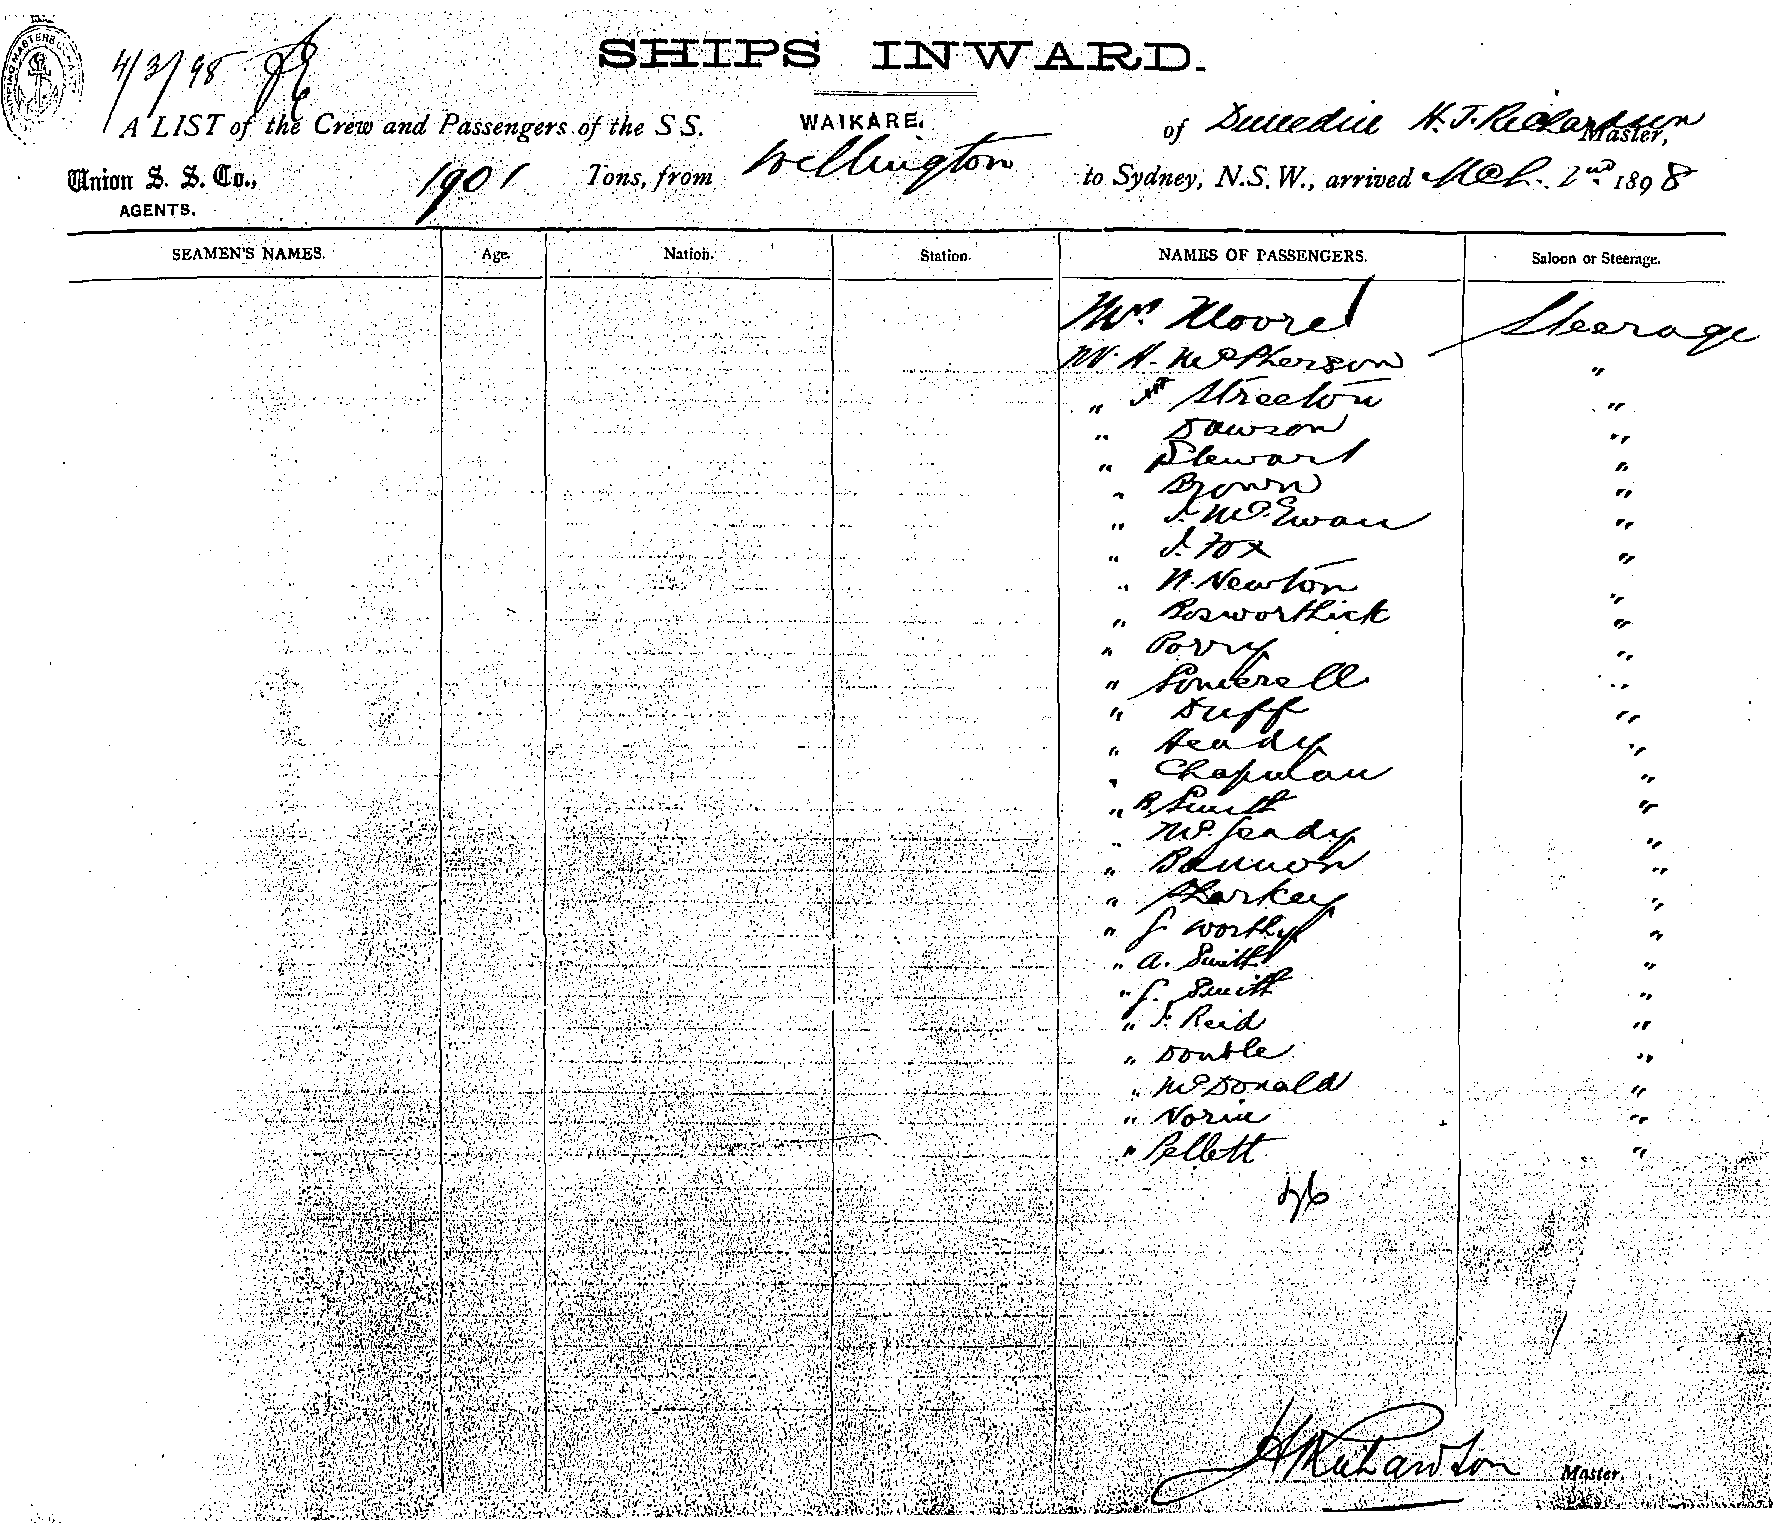 SHIPS INWARD.
4/3/98
A LIST of the Crew and Passengers of the S.S. WAIKARE. of Dunedin H. J. Richardson Master,
Union S. S. Co., AGENTS. 1901 Tons, from Wellington to Sydney, N.S.W., arrived Mch. 2nd 1898
SEAMEN'S NAMES. Age. Nation. Station. NAMES OF PASSENGERS. Saloon or Steerage.
Mrs Moore Steerage
Mr. H. McPherson "
" Streeton "
" Dawson "
" Stewart "
" Brown "
" J. McEwan "
" J. Fox "
" N. Newton "
" Bosworthick "
" Porry "
" Somerell "
" Duff "
" Heady "
" Chapman "
" R Smith "
" McGeady "
" Bannon "
" Sharkey "
" G. Worthy "
" A. Smith "
" G. Smith "
" J. Reid "
" Double "
" McDonald "
" Norin "
" Pellett "
H Richardson Master.